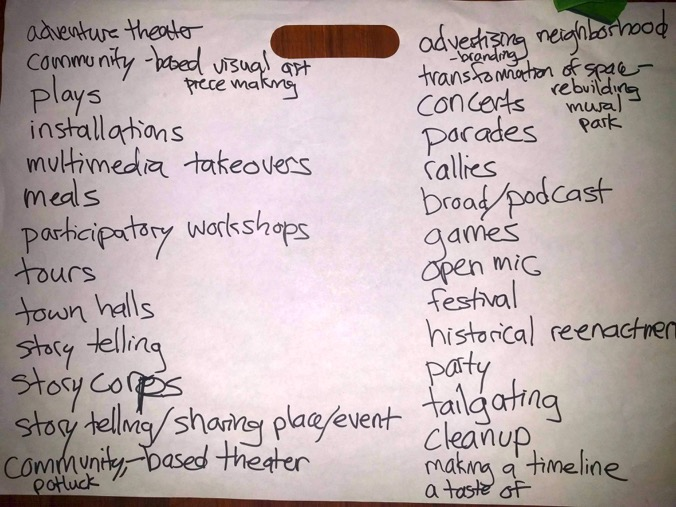 adventure theater
community-based visual art
piece making
plays
installations
multimedia takeovers
meals
participatory workshops
tours
town halls
story telling
story corps
story telling/sharing place/event
community-based theater
potluck
advertising neighborhood
-branding
transformation of space-
rebuilding
mural
park
concerts
parades
rallies
broad/podcast
games
open mic
festival
historical reenactmen
party
tailgating
cleanup
making a timeline
a taste of